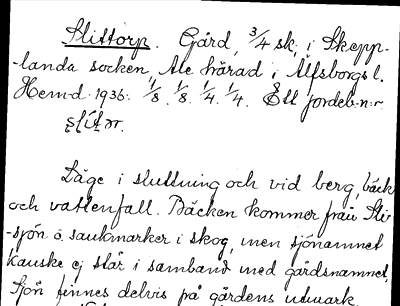 Slittorp. Gård, 3/4 sk, i Skepp-
-landa socken, Ale härad i Älfsborgs l.
Hemd. 1936: 1/8. 1/8. 1/4. 1/4. Ett jordeb.n:r
Läge i sluttning och vid berg, bäck
och vattenfall. Bäcken kommer från Sli-
-sjön o. sankmarker i skog, men sjönamnet
kanske ej står i samband med gårdsnamnet.
Sjön finnes delvis på gårdens utmark.